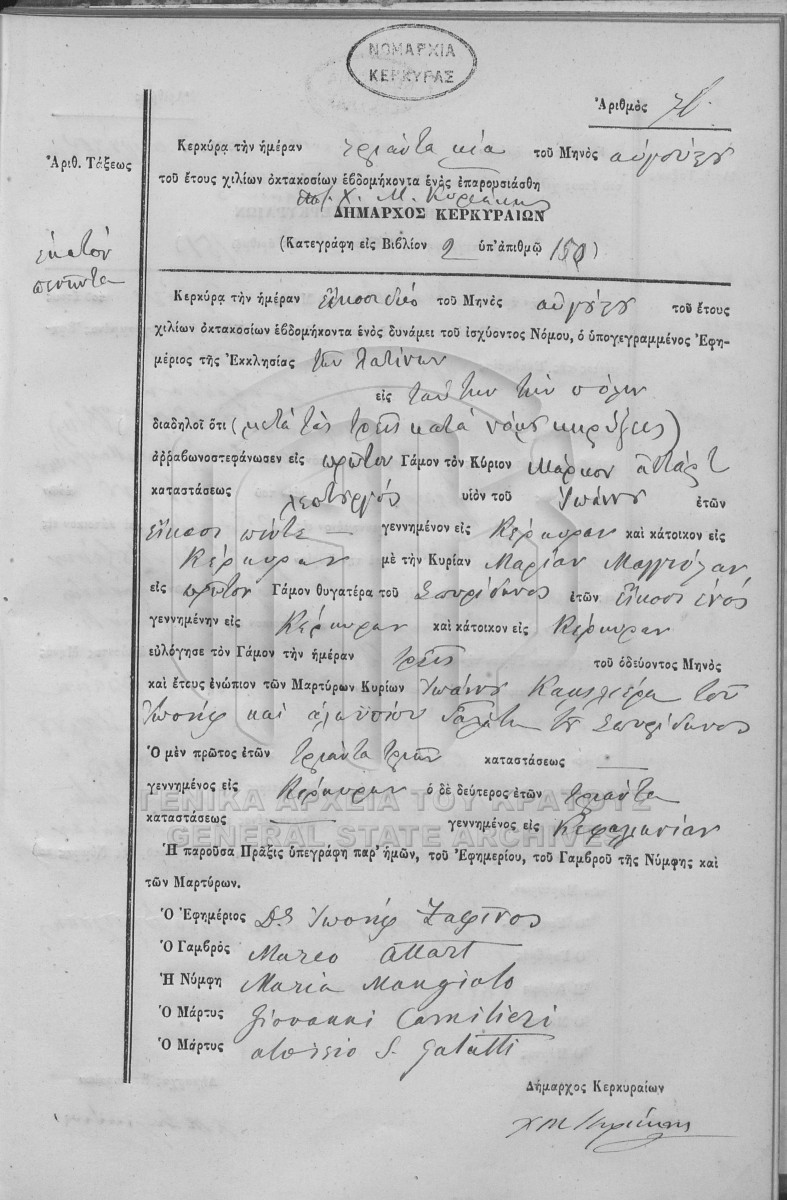 ΝΟΜΑΡΧΙΑ
ΚΕΡΚΥΡΑΣ
Ἀριθμὸς
Ἀριθ. Τάξεως
ἑκατὸν
πενῆντα
Κερκύρᾳ τὴν ἡμέραν τριάντα μία τοῦ Μηνὸς αὐγούστου
τοῦ ἔτους χιλίων ὀκτακοσίων ἑβδομήκοντα ἑνὸς ἐπαρουσιάσθη
Χ. Μ. Κυριάκης
ΔΗΜΑΡΧΟΣ ΚΕΡΚΥΡΑΙΩΝ
(Κατεγράφη εἰς Βιβλίον 2 ὑπ' ἀριθμῷ 150)
Κερκύρᾳ τὴν ἡμέραν εἴκοσι δύο τοῦ Μηνὸς αὐγούστου τοῦ ἔτους
χιλίων ὀκτακοσίων ἑβδομήκοντα ἑνὸς δυνάμει τοῦ ἰσχύοντος Νόμου, ὁ ὑπογεγραμμένος Ἐφη-
μέριος τῆς Ἐκκλησίας τῶν Λατίνων
εἰς ταύτην τὴν πόλιν
διαδηλοῖ ὅτι (μετὰ τὰς τρεῖς κατὰ νόμον κηρύξεις)
ἀῤῥαβωνοστεφάνωσεν εἰς πρῶτον Γάμον τὸν Κύριον Μάρκον Ἀττάρτ
καταστάσεως λεπτουργός υἱὸν τοῦ Ἰωάννου ἐτῶν
εἴκοσι πέντε — γεννημένον εἰς Κέρκυραν καὶ κάτοικον εἰς
Κέρκυραν μὲ τὴν Κυρίαν Μαρίαν
εἰς πρῶτον Γάμον θυγατέρα τοῦ Σπυρίδωνος ἐτῶν εἴκοσι ἑνός
γεννημένην εἰς Κέρκυραν καὶ κάτοικον εἰς Κέρκυραν
εὐλόγησε τὸν Γάμον τὴν ἡμέραν τρεῖς τοῦ ὁδεύοντος Μηνὸς
καὶ ἔτους ἐνώπιον τῶν Μαρτύρων Κυρίων Ἰωάννου Καμιλιέρα τοῦ
Ἰωσὴφ καὶ Γαλάτη τοῦ Σπυρίδωνος
Ὁ μὲν πρῶτος ἐτῶν τριάντα τριῶν καταστάσεως —
γεννημένος εἰς Κέρκυραν ὁ δὲ δεύτερος ἐτῶν τριάντα
καταστάσεως — γεννημένος εἰς Κεφαλληνίαν
ΓΕΝΙΚΑ ΑΡΧΕΙΑ ΤΟΥ ΚΡΑΤΟΥΣ
GENERAL STATE ARCHIVES
Ἡ παροῦσα Πρᾶξις ὑπεγράφη παρ' ἡμῶν, τοῦ Ἐφημερίου, τοῦ Γαμβροῦ τῆς Νύμφης καὶ
τῶν Μαρτύρων.
Ὁ Ἐφημέριος Ἰωσὴφ Ζαφῖνος
Ὁ Γαμβρὸς Marco Attart
Ἡ Νύμφη Maria Mangiato
Ὁ Μάρτυς Giovanni Camilieri
Ὁ Μάρτυς S. Galatti
Δήμαρχος Κερκυραίων
Χ Μ Κυριάκης